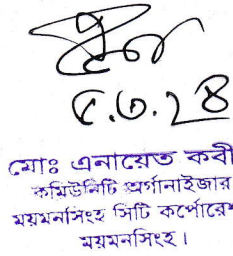 ৫.৩.২৪
মোঃ এনায়েত কবী
কমিউনিটি অর্গানাইজার
ময়মনসিংহ সিটি কর্পোরেশ
ময়মনসিংহ।